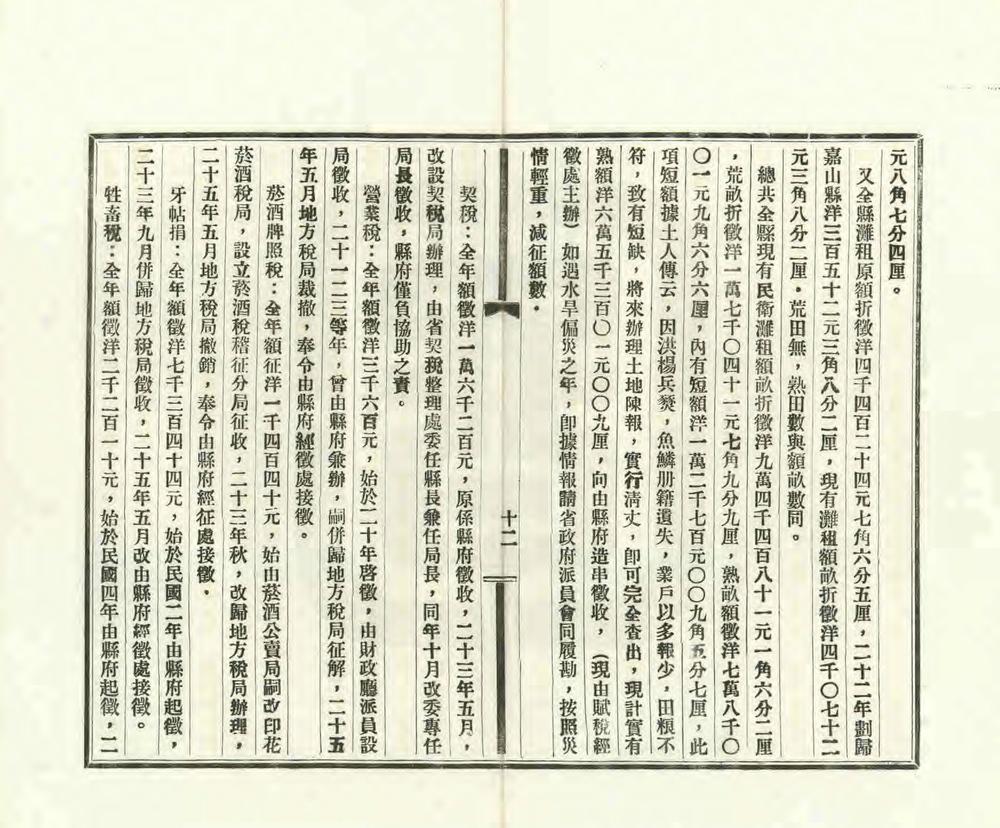 元八角七分四厘。
又全縣灘租原額折徵洋四千四百二十四元七角六分五厘，二十二年劃歸
嘉山縣洋三百五十二元三角八分二厘，現有灘租額畝折徵洋四千〇七十二
元三角八分二厘。荒田無，熟田數與額畝數同。
總共全縣現有民衛灘租額畝折徵洋九萬四千四百八十一元一角六分二厘
，荒畝折徵洋一萬七千〇四十一元七角九分九厘，熟畝額徵洋七萬八千〇
〇一元九角六分六厘，內有短額洋一萬二千七百元〇〇九角五分七厘，此
項短額據土人傳云，因洪楊兵燹，魚鱗册籍遺失，業戶以多報少，田粮不
符，致有短缺，將來辦理土地陳報，實行淸丈，卽可完全查出，現計實有
熟額洋六萬五千三百〇一元〇〇九厘，向由縣府造串徵收，（現由賦稅經
徵處主辦）如遇水旱偏災之年，卽據情報請省政府派員會同履勘，按照災
情輕重，減征額數。
十二
契稅：全年額徵洋一萬六千二百元，原係縣府徵收，二十三年五月，
改設契稅局辦理，由省契稅整理處委任縣長兼任局長，同年十月改委專任
局長徵收，縣府僅負協助之責。
營業稅：全年額徵洋三千六百元，始於二十年啓徵，由財政廳派員設
局徵收，二十一二三等年，曾由縣府兼辦，嗣併歸地方稅局征解，二十五
年五月地方稅局裁撤，奉令由縣府經徵處接徵。
菸酒牌照稅：全年額征洋一千四百四十元，始由菸酒公賣局嗣改印花
菸酒稅局，設立菸酒稅稽征分局征收，二十三年秋，改歸地方稅局辦理，
二十五年五月地方稅局撤銷，奉令由縣府經征處接徵。
牙帖捐：全年額徵洋七千三百四十四元，始於民國二年由縣府起徵，
二十三年九月併歸地方稅局徵收，二十五年五月改由縣府經徵處接徵。
牲畜稅：全年額徵洋二千二百一十元，始於民國四年由縣府起徵，二